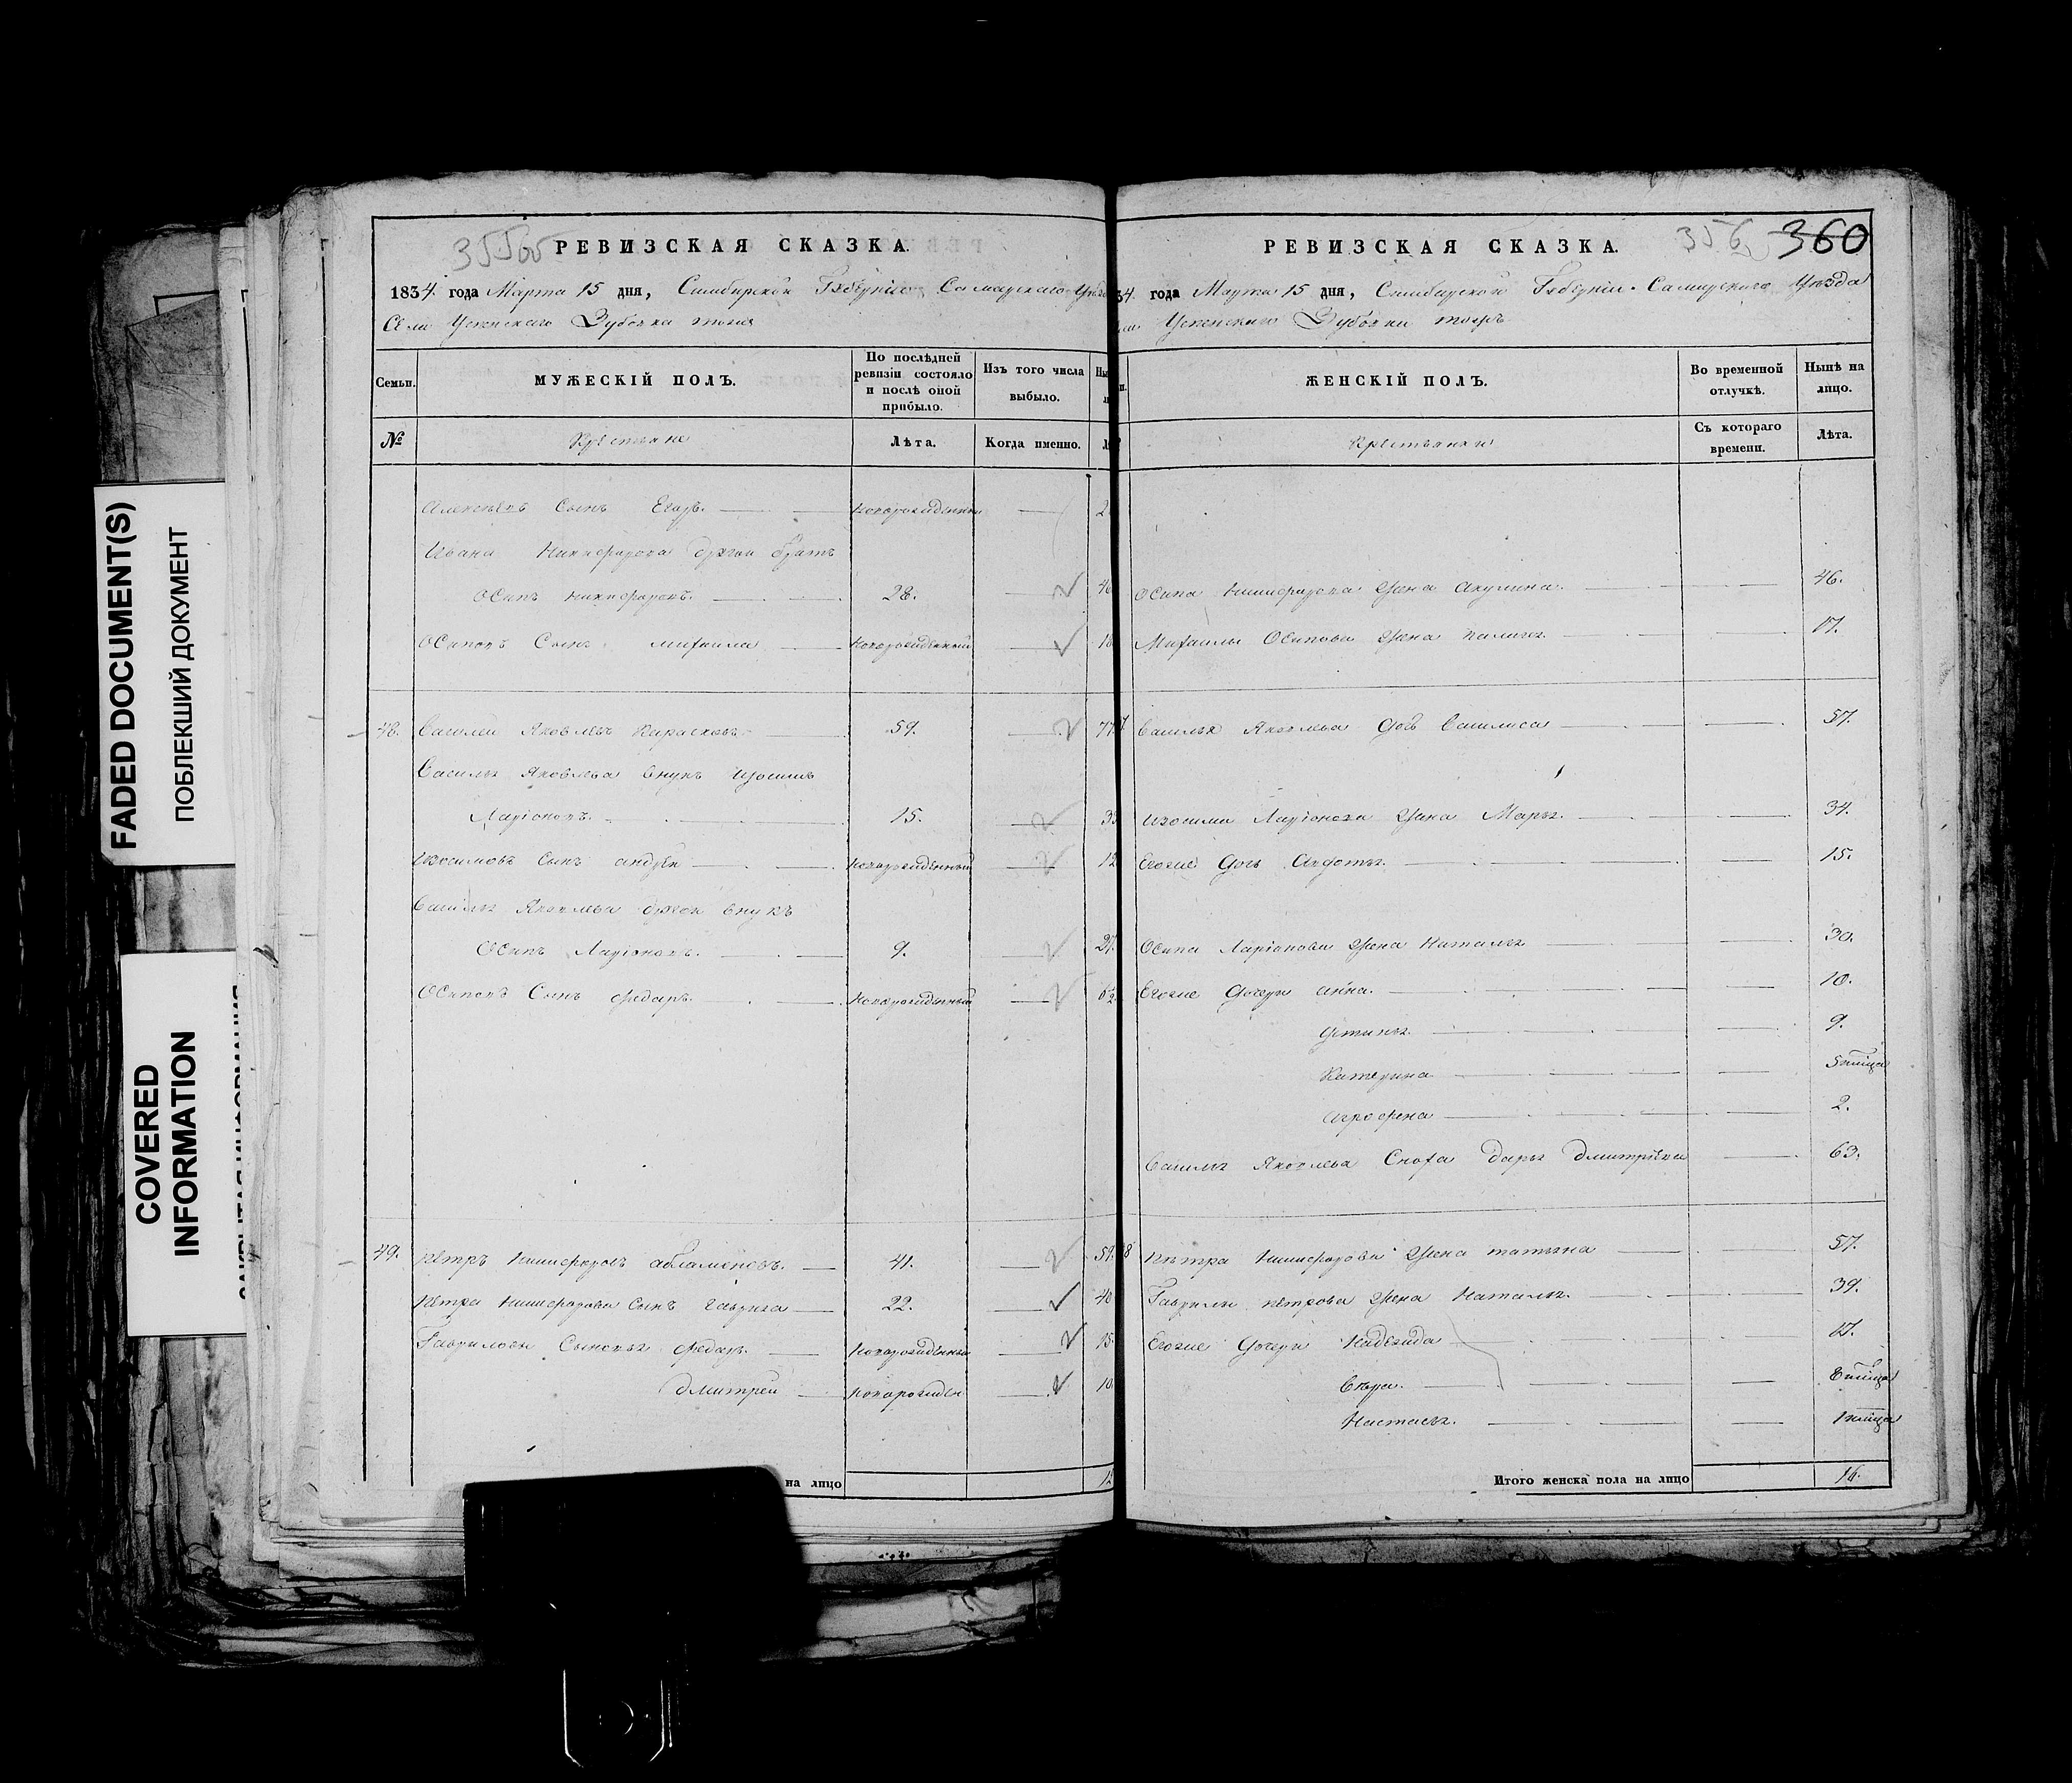 FADED DOCUMENT(S)
ПОБЛЕКШИЙ ДОКУМЕНТ
COVERED
INFORMATION
355об
РЕВИЗСКАЯ СКАЗКА.
1834. года Марта 15 дня, Симбирской Губерніи Самарскаго Уѣзда
Села Успенскаго Зубовка тожъ
Семьи.
МУЖЕСКІЙ ПОЛЪ.
По послѣдней ревизіи состояло и послѣ оной прибыло.
Изъ того числа выбыло.
№
Крестьяне
Лѣта.
Когда именно.
Алексѣевъ Сынъ Егаръ. новорожденный
Ивана Никифорова другой братъ
Осипъ Никифоровъ. 28.
Осиповъ Сынъ Михаила новорожденный 18
48. Василей Яковлевъ 59. 77
Василья Яковлева внукъ Изосимъ
Ларіоновъ. 15. 33
Изосимовъ Сынъ андрей новорожденный 12
Василья Яковлева другой внукъ
Осипъ Ларіоновъ. 9. 27.
Осиповъ Сынъ Федаръ новорожденный
49. Петръ Никифоровъ 41. 59.
Петра Никифорова Сынъ Гаврила 22. 40
Гавриловы Сыновья Федаръ новорожденный 15
Дмитрей новорожден 10
на лицо 12
356
360
РЕВИЗСКАЯ СКАЗКА.
34. года Марта 15 дня, Симбирской Губерніи Самарскаго Уѣзда
Успенскаго Зубовки тожъ
ЖЕНСКІЙ ПОЛЪ.
Во временной отлучкѣ.
Нынѣ на лицо.
Крестьянки
Съ котораго времени.
Лѣта.
Осипа Никифорова жена Акулина 46.
Михаилы Осипова жена 17.
Василья Яковлева Дочь Василиса 57.
Изосима Ларіонова жена Марья 34.
Егоже Дочь Авдотья. 15.
Осипа Ларіонова жена Наталья 30.
Егоже Дочери анна. 10.
Устинья 9.
Катерина
Агрофена 2.
Василья Яковлева Сноха Дарья Дмитріева 63.
Петра Никифорова жена татьяна 57.
Гаврилы петрова жена Наталья. 39.
Егоже Дочери Надежда 17.
Вѣра.
Настасья.
Итого женска пола на лицо 16.